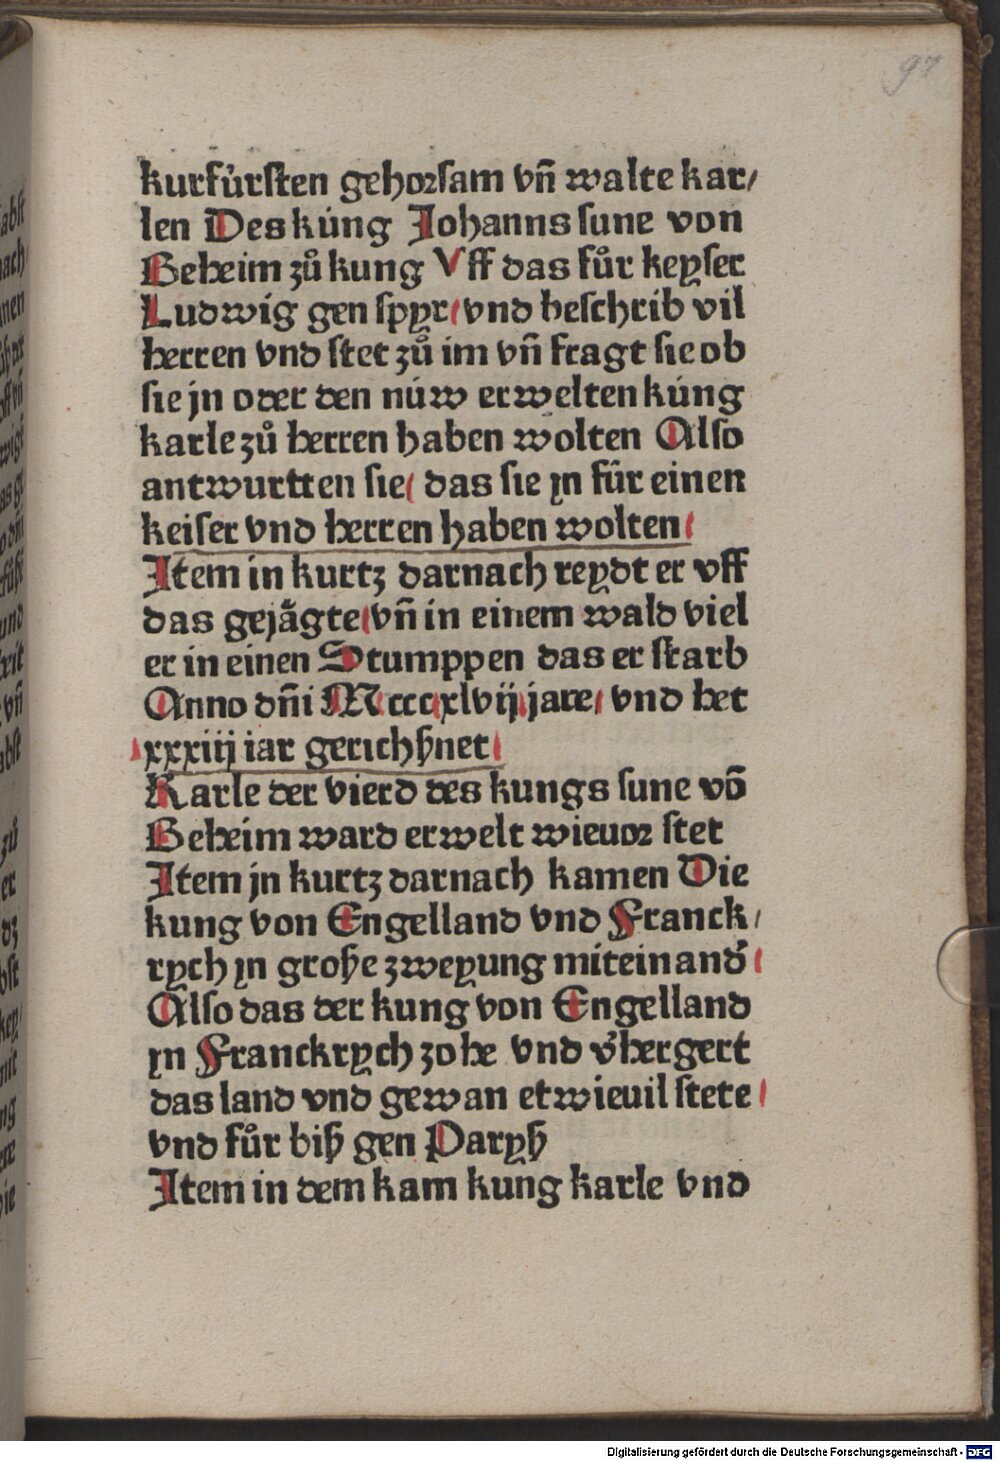 97
kurfůrſten gehorſam vñ walte kar/
len Des kúng Johanns ſune von
Beheim zů kung Vff das fůr keyſer
Ludwig gen ſpyr/ vnd beſchrib vil
herren vnd ſtet zů im vñ fragt ſie ob
ſie jn oder den núw erwelten kúng
karle zů herren haben wolten Alſo
antwurtten ſie/ das ſie yn fúr einen
keiſer vnd herren haben wolten/
Item in kurtz darnach reydt er vff
das gejågte/ vñ in einem wald viel
er in einen Stumppen das er ſtarb
Anno dñi Mcccxlvij jare/ vnd het
xxxiij iar gerichßnet/
Karle der vierd des kungs ſune võ
Beheim ward erwelt wieuor ſtet
Item jn kurtz darnach kamen Die
kung von Engelland vnd Franck/
rych yn große zweyung miteinand᷑/
Alſo das der kung von Engelland
yn Franckrych zohe vnd v᷑hergert
das land vnd gewan etwieuil ſtete/
vnd fůr biß gen Paryß
Item in dem kam kung karle vnd
Digitalisierung gefördert durch die Deutsche Forschungsgemeinschaft - DFG